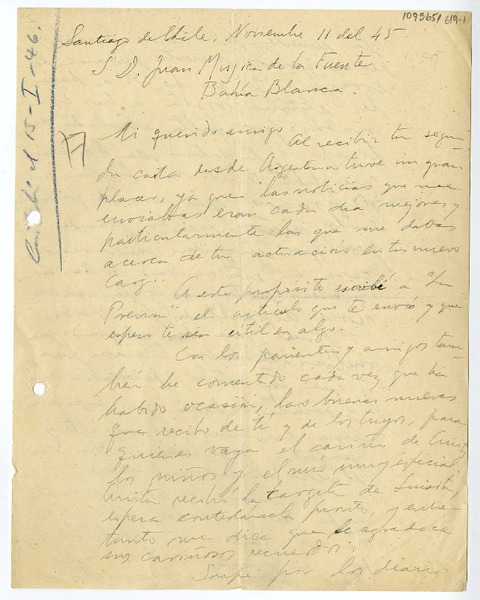 109365/ 619-1
Santiago de Chile, Noviembre 11 del 45
S. D. Juan Mujica de la Fuente
Bahía Blanca.
Contesté el 15-I-46.
Mi querido amigo:
Al recibir tu segun
da carta desde Argentina tuve un gran
placer, ya que las noticias que me
enviabas eran cada día mejores y
particularmente las que me dabas
acerca de tu actuación en tu nuevo
cargo.
A este propósito escribí a "La
Prensa" el artículo que te envío y que
espero te sea útil en algo.
Con los parientes y amigos tam-
bién he comentado cada vez que ha
habido ocasión, las buenas nuevas
que recibo de tí y de los tuyos, para
quienes vaya el cariño de
los niños y el mío muy especial.
recibió la targeta de Luisita,
espera contestársela pronto, y entre
tanto me dice que le agradece
sus cariñosos recuerdos.
Supe por los diarios